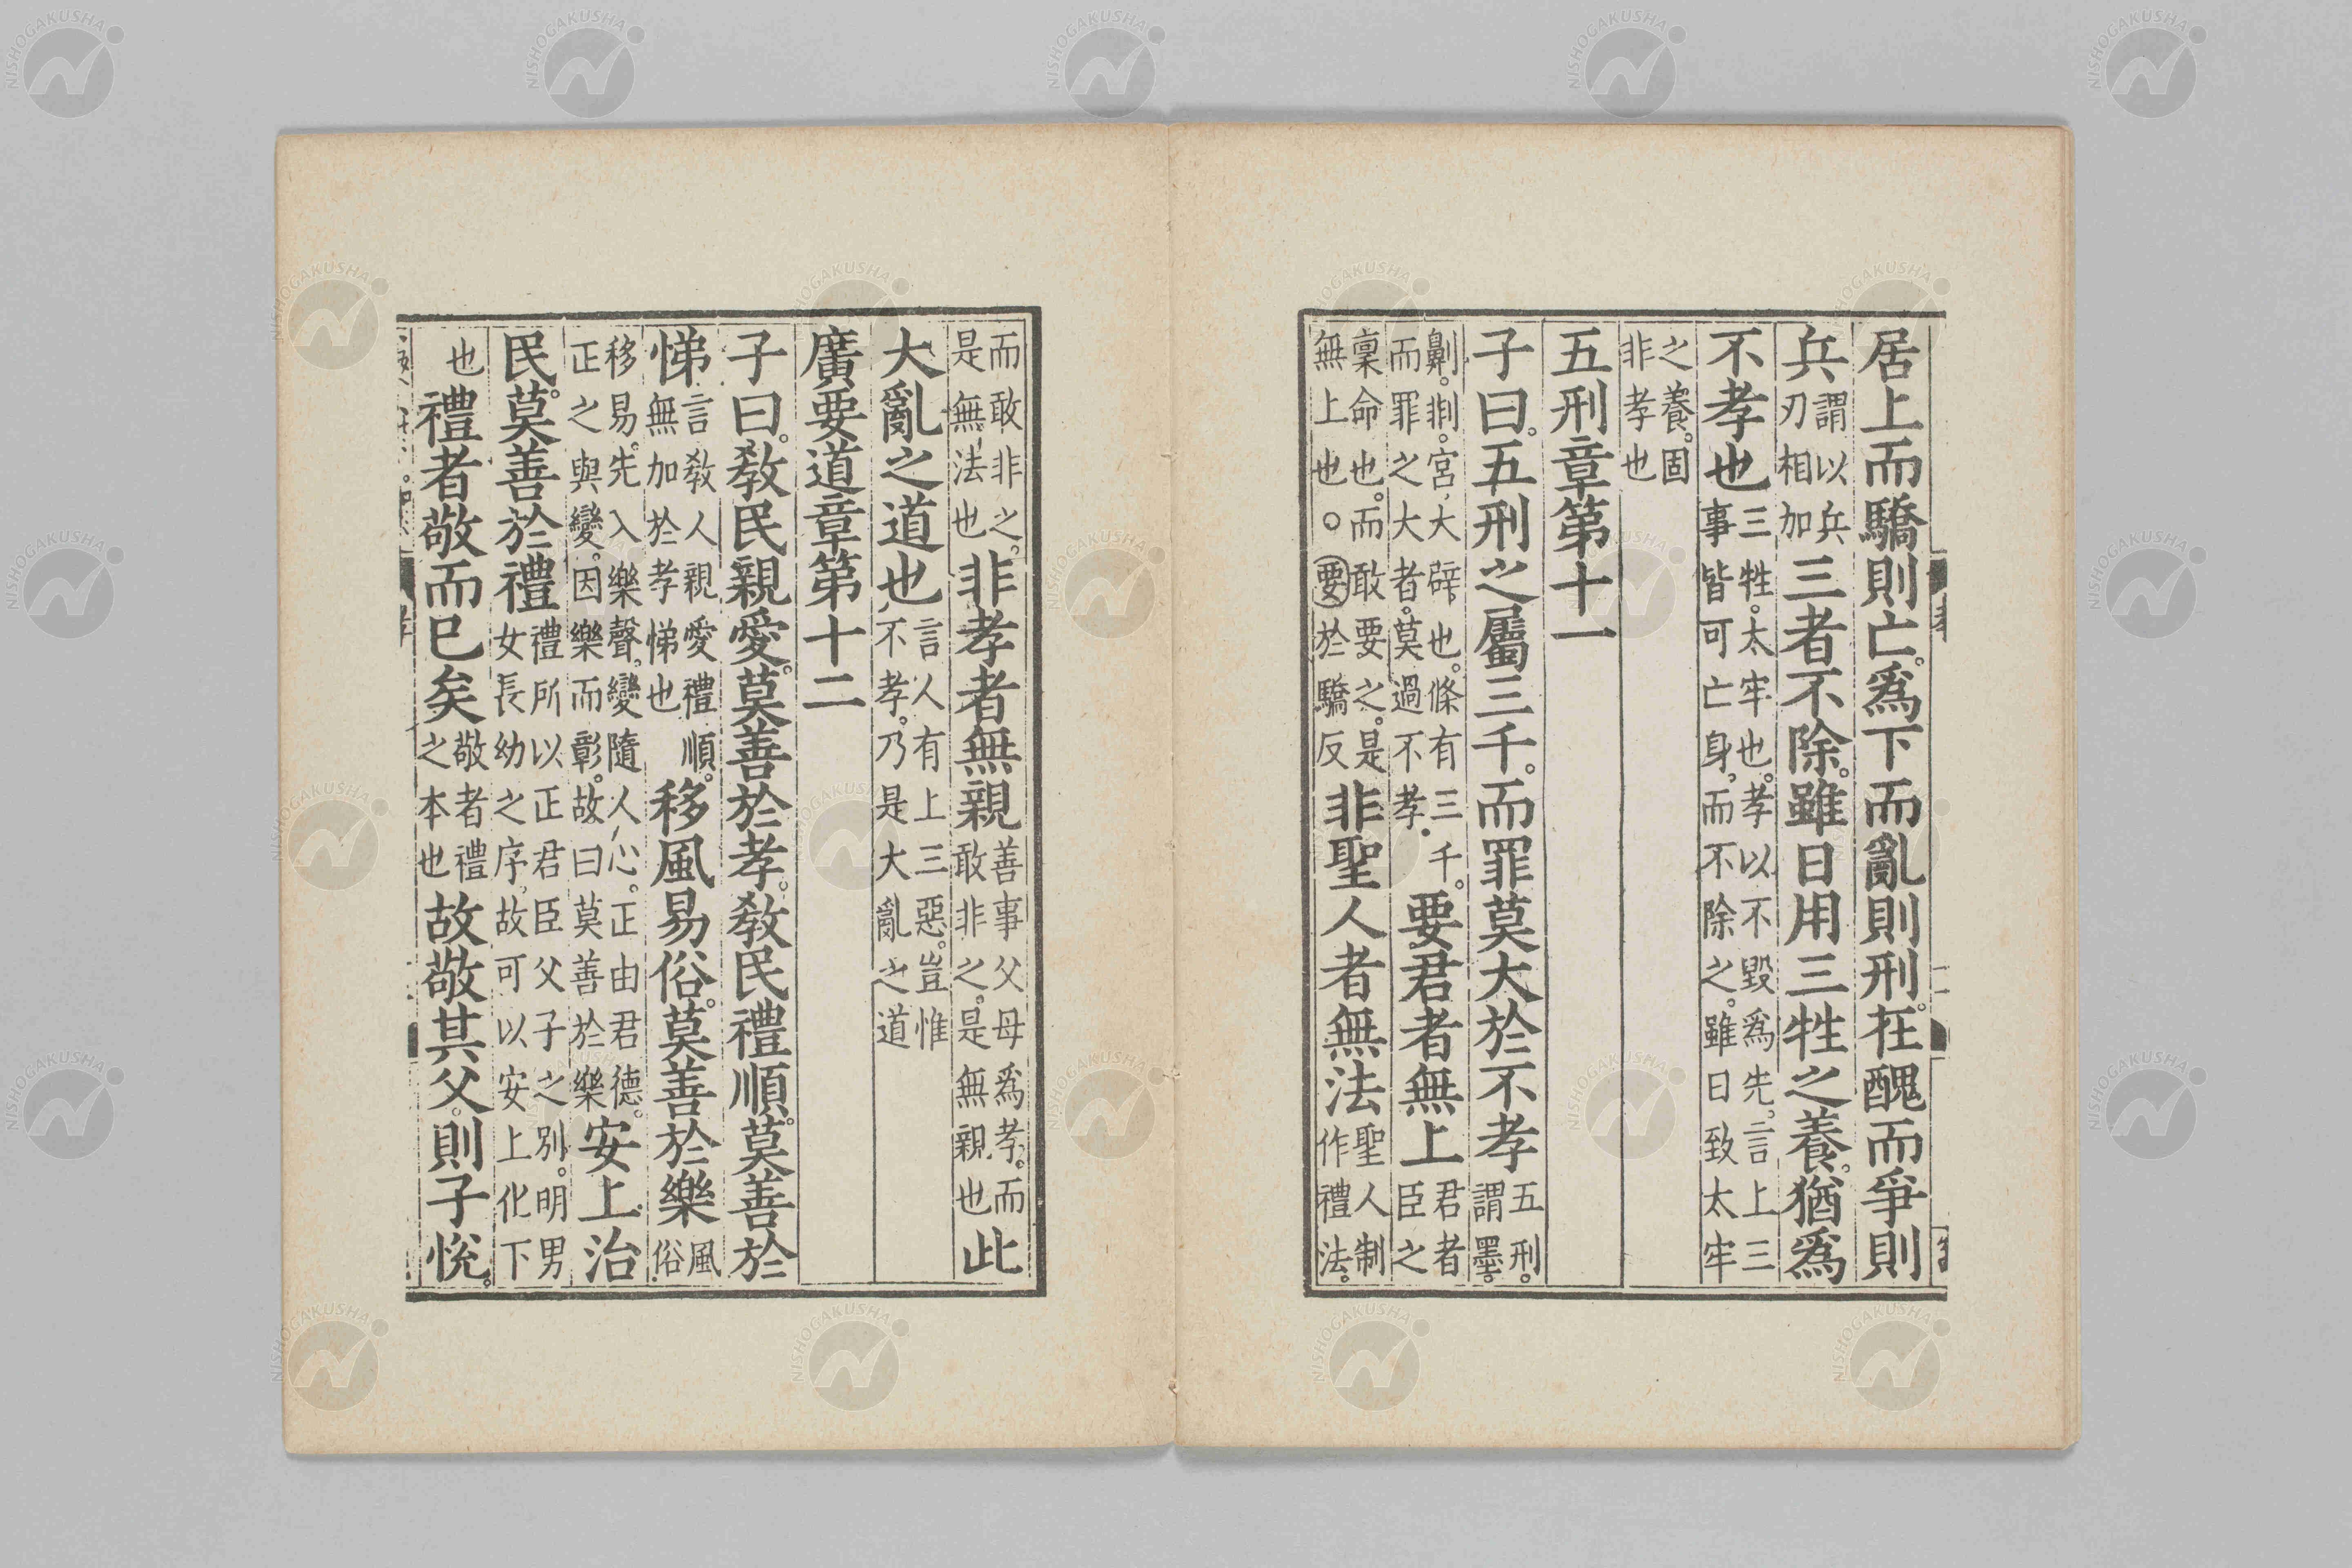 居上而驕則亡。爲下而亂則刑。在醜而爭則
兵謂以兵刃相加三者不除。雖日用三牲之養。猶爲
不孝也三牲。太牢也。孝以不毀爲先。言上三事皆可亡身。而不除之。雖日致太牢
之養。固非孝也
五刑章第十一
子曰。五刑之屬三千。而罪莫大於不孝五刑。謂墨。
劓。剕。宮。大辟也。條有三千。而罪之大者。莫過不孝要君者無上君者臣之
稟命也。而敢要之。是無上也。○要於驕反非聖人者無法聖人制作禮法。
而敢非之。是無法也非孝者無親善事父母爲孝。而敢非之。是無親也此
大亂之道也言人有上三惡。豈惟不孝。乃是大亂之道
廣要道章第十二
子曰。教民親愛。莫善於孝。教民禮順。莫善於
悌言教人親愛禮順。無加於孝悌也移風易俗。莫善於樂風俗
移易。先入樂聲。變隨人心。正由君德。正之與變。因樂而彰。故曰莫善於樂安上治
民。莫善於禮禮所以正君臣父子之別。明男女長幼之序。故可以安上化下
也禮者敬而已矣敬者禮之本也故敬其父。則子悅。
NISHOGAKUSHA